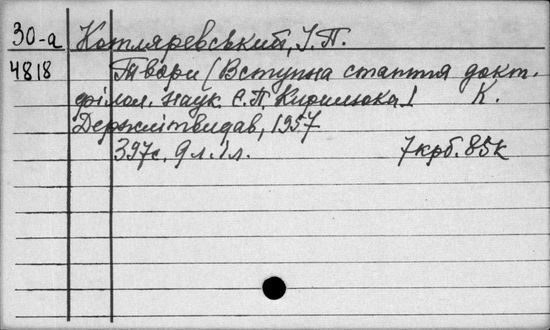 30-а Котляревський, І.П.
4818 Твори [Вступна стаття докт.
філол. наук. Є.П. Кирилюка] К.
Держлітвидав, 1957
397с. 9 л. іл. 7крб. 85к